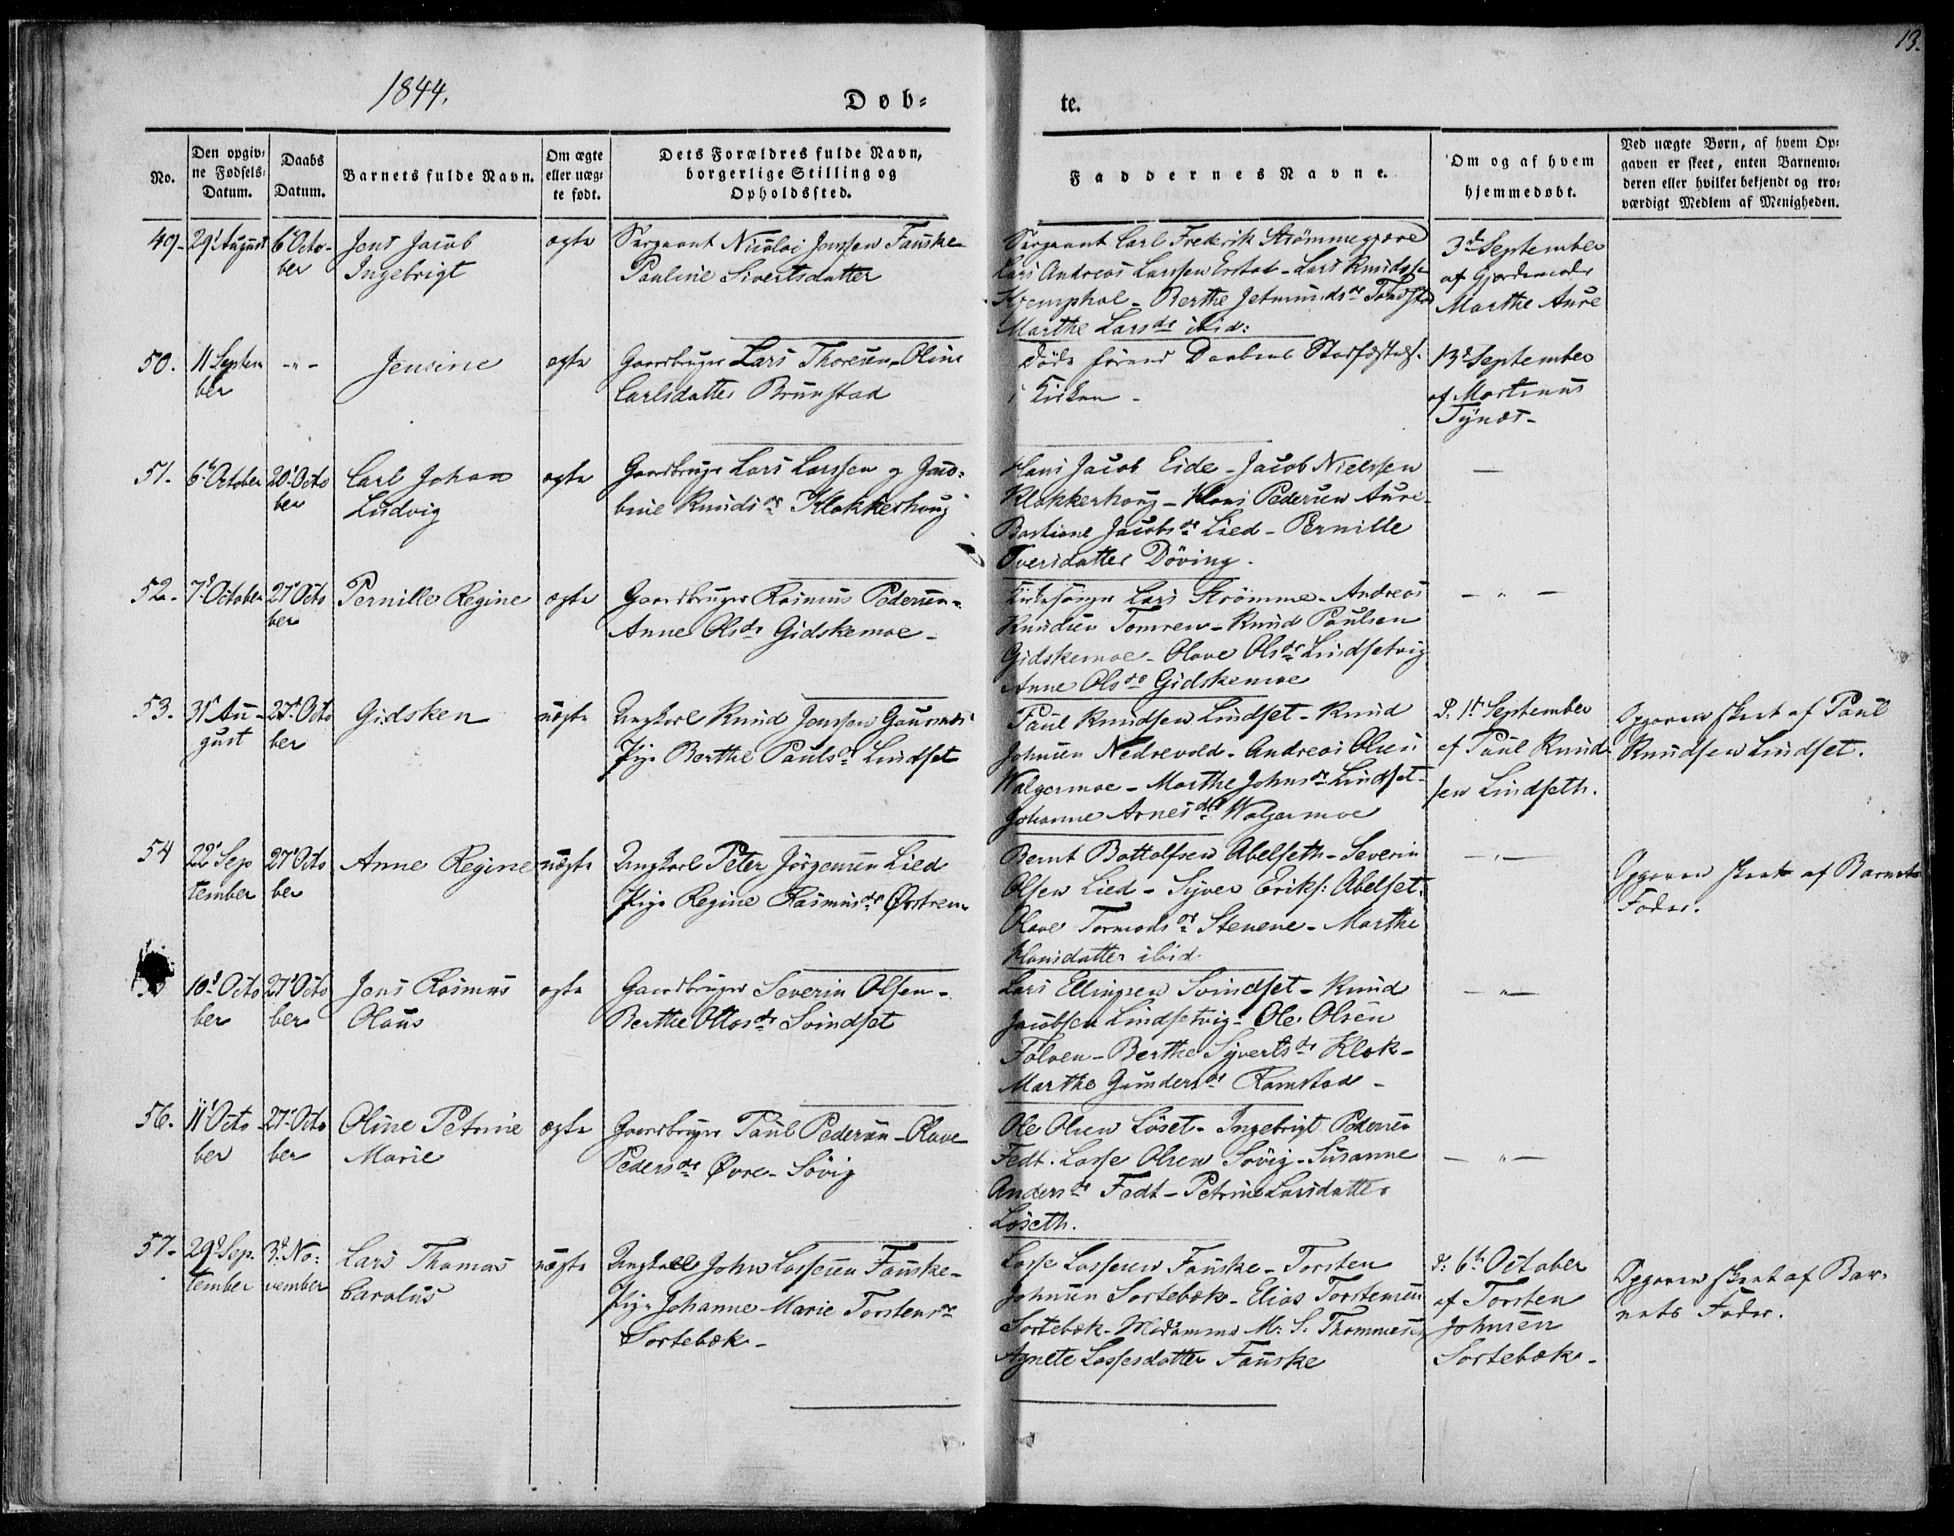 13.
1844.
Døb-
te.
No.
Den opgiv-
ne Fødsels-
Datum.
Daabs
Datum.
Barnets fulde Navn.
Om ægte
eller uæg-
te født.
Dets Forældres fulde Navn,
borgerlige Stilling og
Opholdssted.
Faddernes Navne.
Om og af hvem
hjemmedøbt.
Ved uægte Børn, af hvem Op-
gaven er skeet, enten Barnemo-
deren eller hvilket bekjendt og tro-
værdigt Medlem af Menigheden.
49-
29' August
6' Octo-
ber
Jens Jacob
Ingebrigt
ægte
Sergeant Nicolai Jenssen Fauske
Pauline Sivertsdatter
Sergeant Carl Frederik Strømmegjære
Lars Andreas Larssen Erstad - Lars Knudss.
Kjemphol - Berthe Jetmundsdr Tandstad
Marthe Larsdr ibid:
3d September
af Gjordemoder
Marthe Aure
50.
11 Septem
ber
- " -
Jensine
ægte
Gaardbruger Lars Thoresen - Oline
Carlsdatter Brunstad
Døde førend Daabens Stadfæstels.
i Kirken -
13' September
af Martinus
Tynæs -
51.
6' October
20' Octo
ber
Carl Johan
Ludvig
ægte
Gaardbruger Lars Larssen og Jaco-
bine Knudsdr Klokkerhoug
Hans Jacob Eide - Jacob Nielssen
Klokkerhoug - Hans Pedersen Aure -
Bastiane Jacobsdr Lied - Pernille
Iversdatter Döving.
—
52-
7' October
27' Octo
ber
Pernille Regine
ægte
Gaardbruger Rasmus Pedersen -
Anne Olsdr Gidskemoe -
Kirkesanger Lars Strømme - Andreas
Knudsen Tomren - Knud Paulsen
Gidskemoe - Olave Olsdr Lindsetvig
Anne Olsdr Gidskemoe
— " —
53.
31' Au-
gust
27' Octo
ber
Gidsken
uægte
Ungkarl Knud Jenssen Gausnæs
Pige Berthe Paulsdr Lindset
Paul Knudsen Lindset - Knud
Johnsen Nedrevold - Andreas Olsen
Walgermoe - Marthe Johnsdr Lindset -
Johanne Arnesdr Walgermoe
d. 1st September
af Paul Knud-
sen Lindseth.
Opgaven skeet af Paul
Knudsen Lindset.
54
22' Sep
tember
27' Octo
ber
Anne Regine
uægte
Ungkarl Peter Jörgensen Lied
Pige Regine Rasmusdr Ørstren
Bernt Bottolfsen Abelseth - Severin
Olsen Lied - Syver Eriks: Abelset.
Olave Tormodsdr Stenene - Marthe
Hansdatter ibid.
— " —
Opgaven skeet af Barnets
Fader.
10' Octo
ber
27' Octo
ber
Jens Rasmus
Olaus
ægte
Gaardbruger Severin Olsen -
Berthe Ottosdr Svindset
Lars Ellingsen Svindset - Knud
Jacobsen Lindsetvig - Ole Olsen
Tolven - Berthe Syvertsdr Klok -
Marthe Gundersdr Ramstad -
— " —
56.
11' Octo
ber
27' Octo
ber
Oline Petrine
Marie
ægte
Gaardbruger Paul Pedersen - Olave
Pedersdr Øvre - Sövig
Ole Olsen Löset - Ingebrigt Pedersen
Fedt. Lasse Olsen Sövig - Susanne
Andersdr Fedt - Petrine Larsdatter
Löseth.
— " —
57-
29' Sep-
tember
3' No-
vember
Lars Thomas
Carolus
uægte
Ungkarl John Lassesen Fauske -
Pige Johanne Marie Torstensdr
Sortebæk -
Lasse Lassesen Fauske - Torsten
Johnsen Sortebæk - Elias Torstensen
Sortebæk - Madamme M: S. Thommesen
Agnete Lassesdatter Fauske
d: 6' October
af Torsten
Johnsen
Sortebæk -
Opgaven skeet af Bar-
nets Fader.